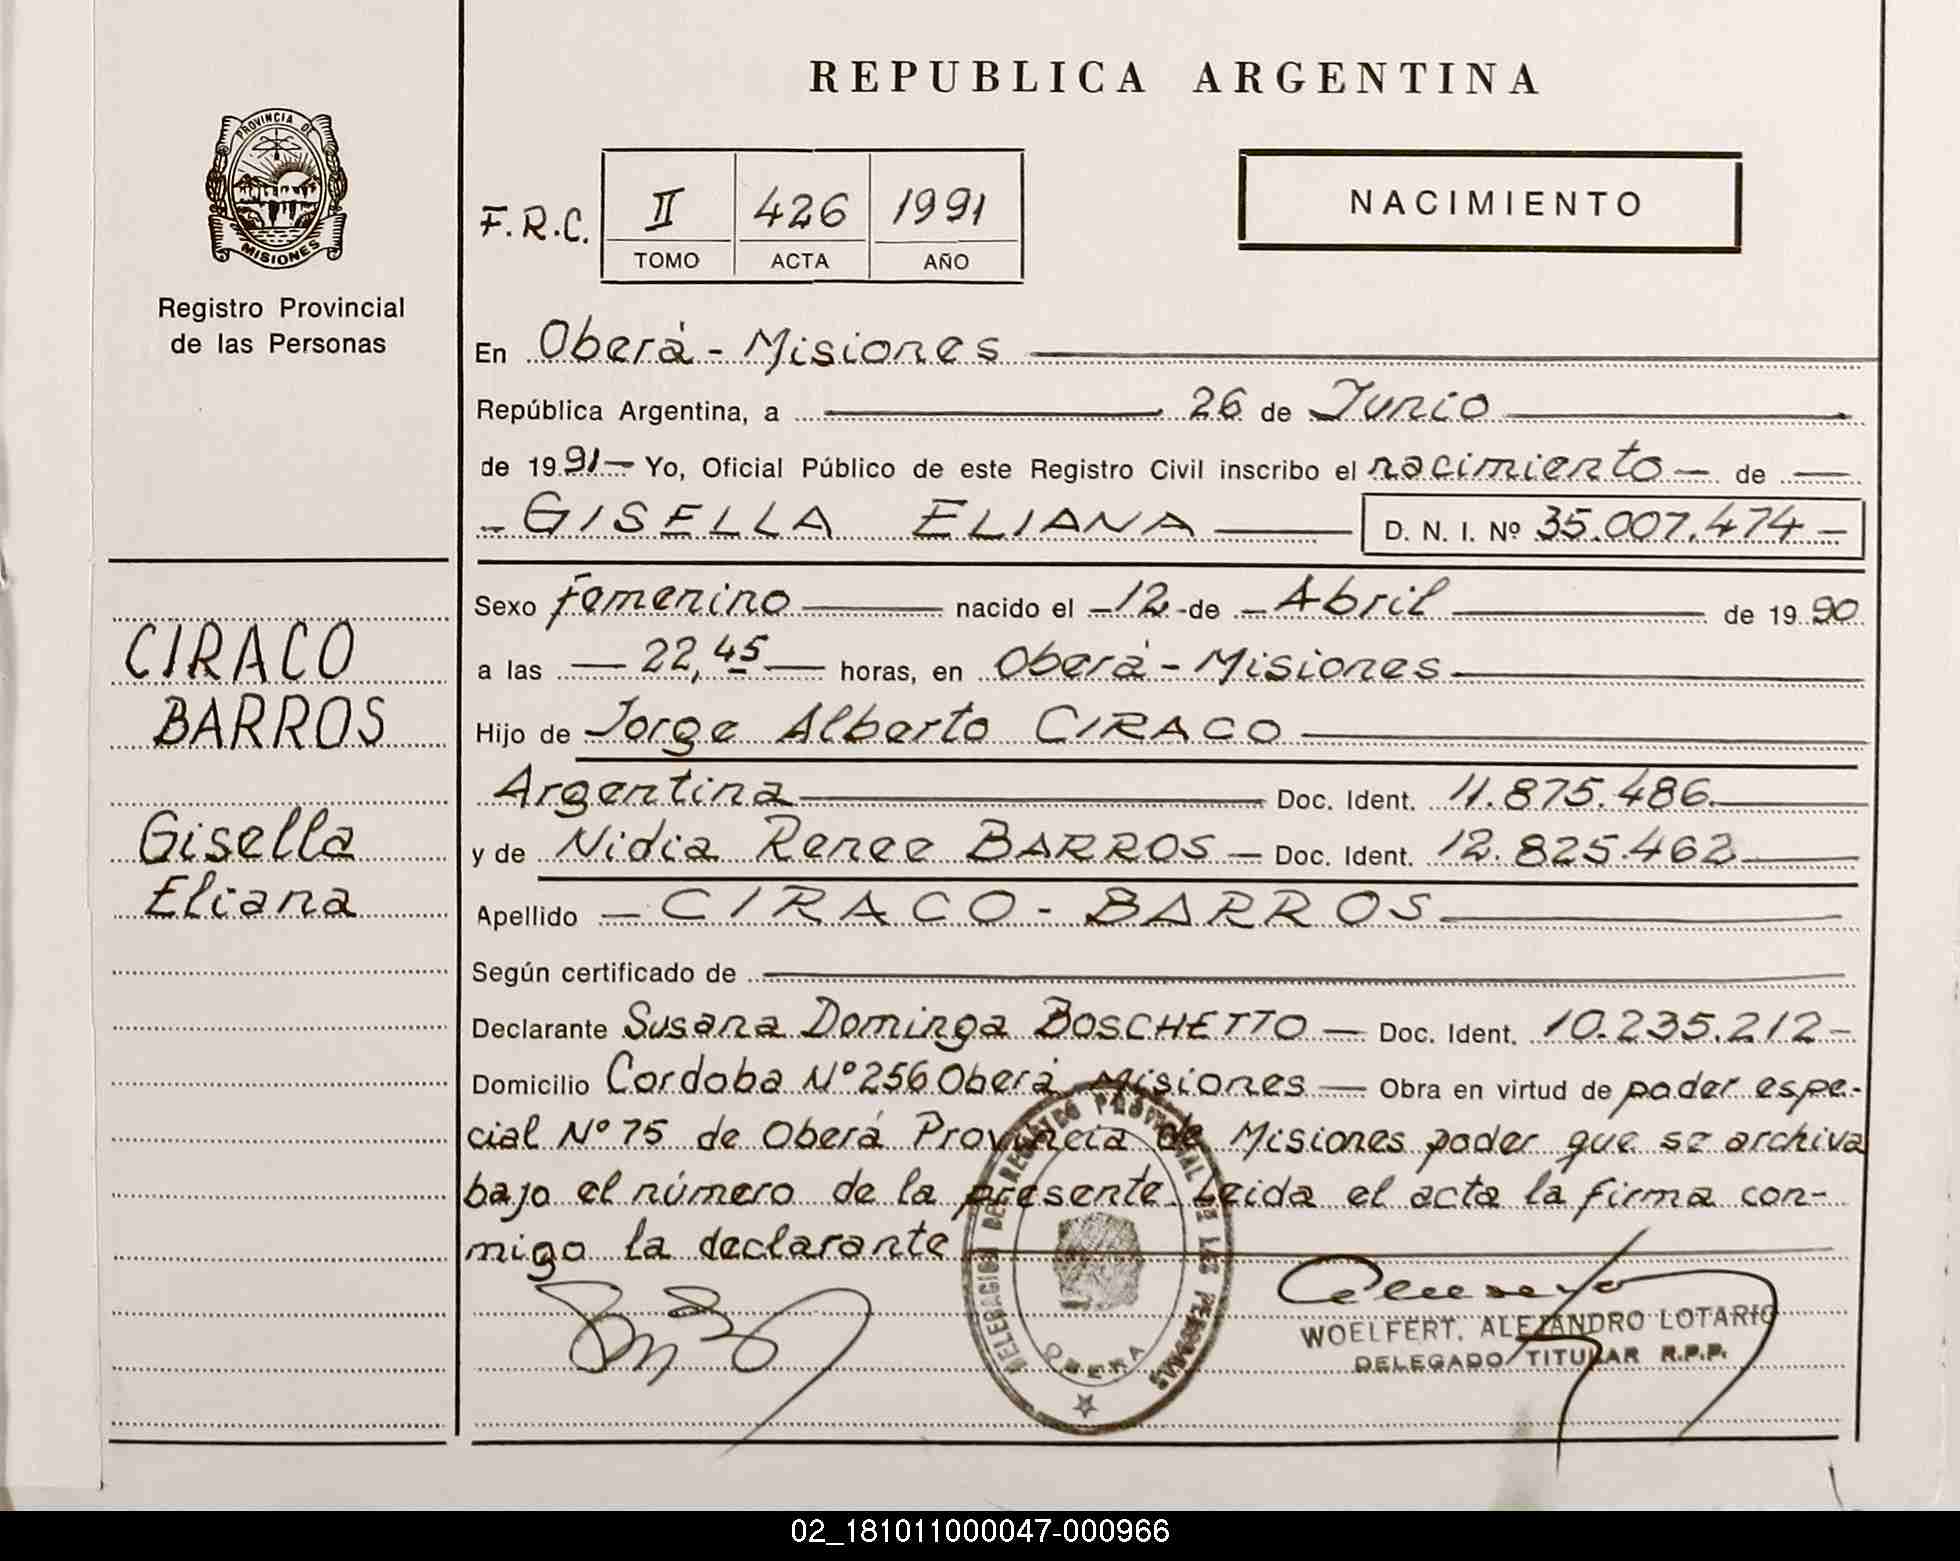 REPUBLICA ARGENTINA
PROVINCIA DE
MISIONES
Registro Provincial
de las Personas
F.R.C. II 426 1991
TOMO ACTA AÑO
NACIMIENTO
En Oberá - Misiones
República Argentina, a 26 de Junio
de 1991 - Yo, Oficial Público de este Registro Civil inscribo el nacimiento - de -
- GISELLA ELIANA D. N. I. Nº 35.007.474 -
CIRACO
BARROS
Gisella
Eliana
Sexo femenino nacido el - 12 - de - Abril de 1990
a las - 22,45 - horas, en Oberá - Misiones
Hijo de Jorge Alberto CIRACO
Argentina Doc. Ident. 11.875.486
y de Nidia Renee BARROS - Doc. Ident. 12.825.462
Apellido - CIRACO - BARROS
Según certificado de
Declarante Susana Dominga BOSCHETTO - Doc. Ident. 10.235.212 -
Domicilio Cordoba Nº 256 Oberá Misiones - Obra en virtud de poder espe-
cial Nº 75 de Oberá Provincia de Misiones poder que se archiva
bajo el número de la presente. Leida el acta la firma con-
migo la declarante
DELEGACION DEL REGISTRO PROVINCIAL DE LAS PERSONAS
OBERA
WOELFERT, ALEJANDRO LOTARIO
DELEGADO TITULAR R.P.P.
02_181011000047-000966